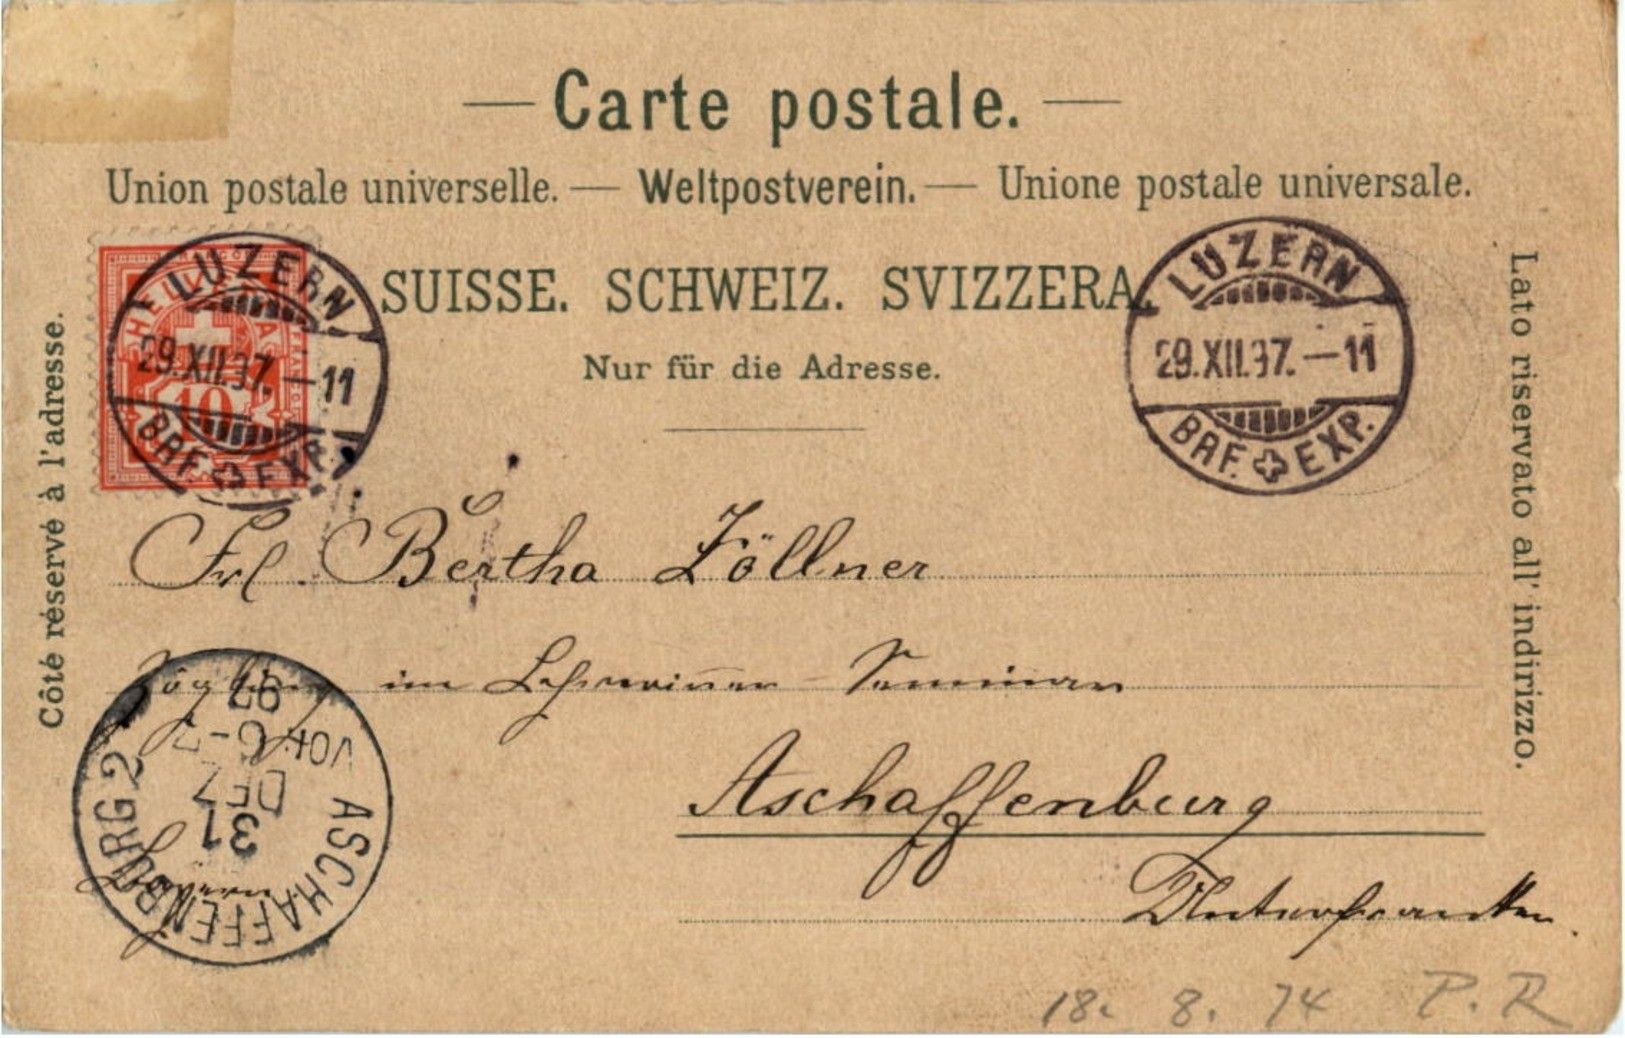 Carte postale.
Union postale universelle. — Weltpostverein. — Unione postale universale.
SUISSE. SCHWEIZ. SVIZZERA.
Nur für die Adresse.
Côté réservé à l'adresse.
Lato riservato all' indirizzo.
HELVETIA
10
LUZERN
29.XII.97.—11
BRF. EXP.
LUZERN
29.XII.97.—11
BRF. EXP.
Frl. Bertha Zöllner
Zögling im Lehrerinnen Seminar
Aschaffenburg
Unterfranken.
Bayern
ASCHAFFENBURG 2
31
DEZ
VOR. 6-7
97
18. 8. 74 P. R